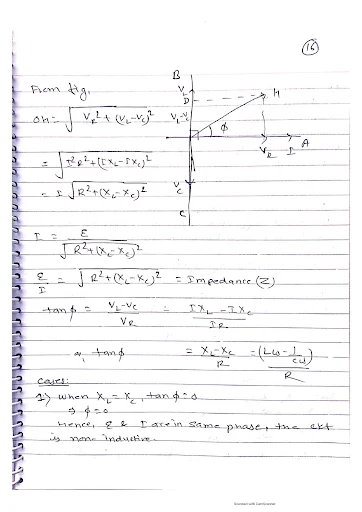 16
From fig.
OH = √V_R² + (V_L-V_C)²
B
V_L
D
H
V_L-V_C
φ
V_R I A
V_C
C
= √I²R² + (IX_L - IX_C)²
= I √R² + (X_L - X_C)²
I = E / √R² + (X_L - X_C)²
E / I = √R² + (X_L - X_C)² = Impedance (Z)
tan φ = V_L - V_C / V_R = IX_L - IX_C / IR
tan φ = X_L - X_C / R = (Lω - 1/Cω) / R
Cases:
1) when X_L = X_C, tan φ = 0
φ = 0
Hence, E & I are in same phase, the ckt
is non-inductive.
Scanned with CamScanner